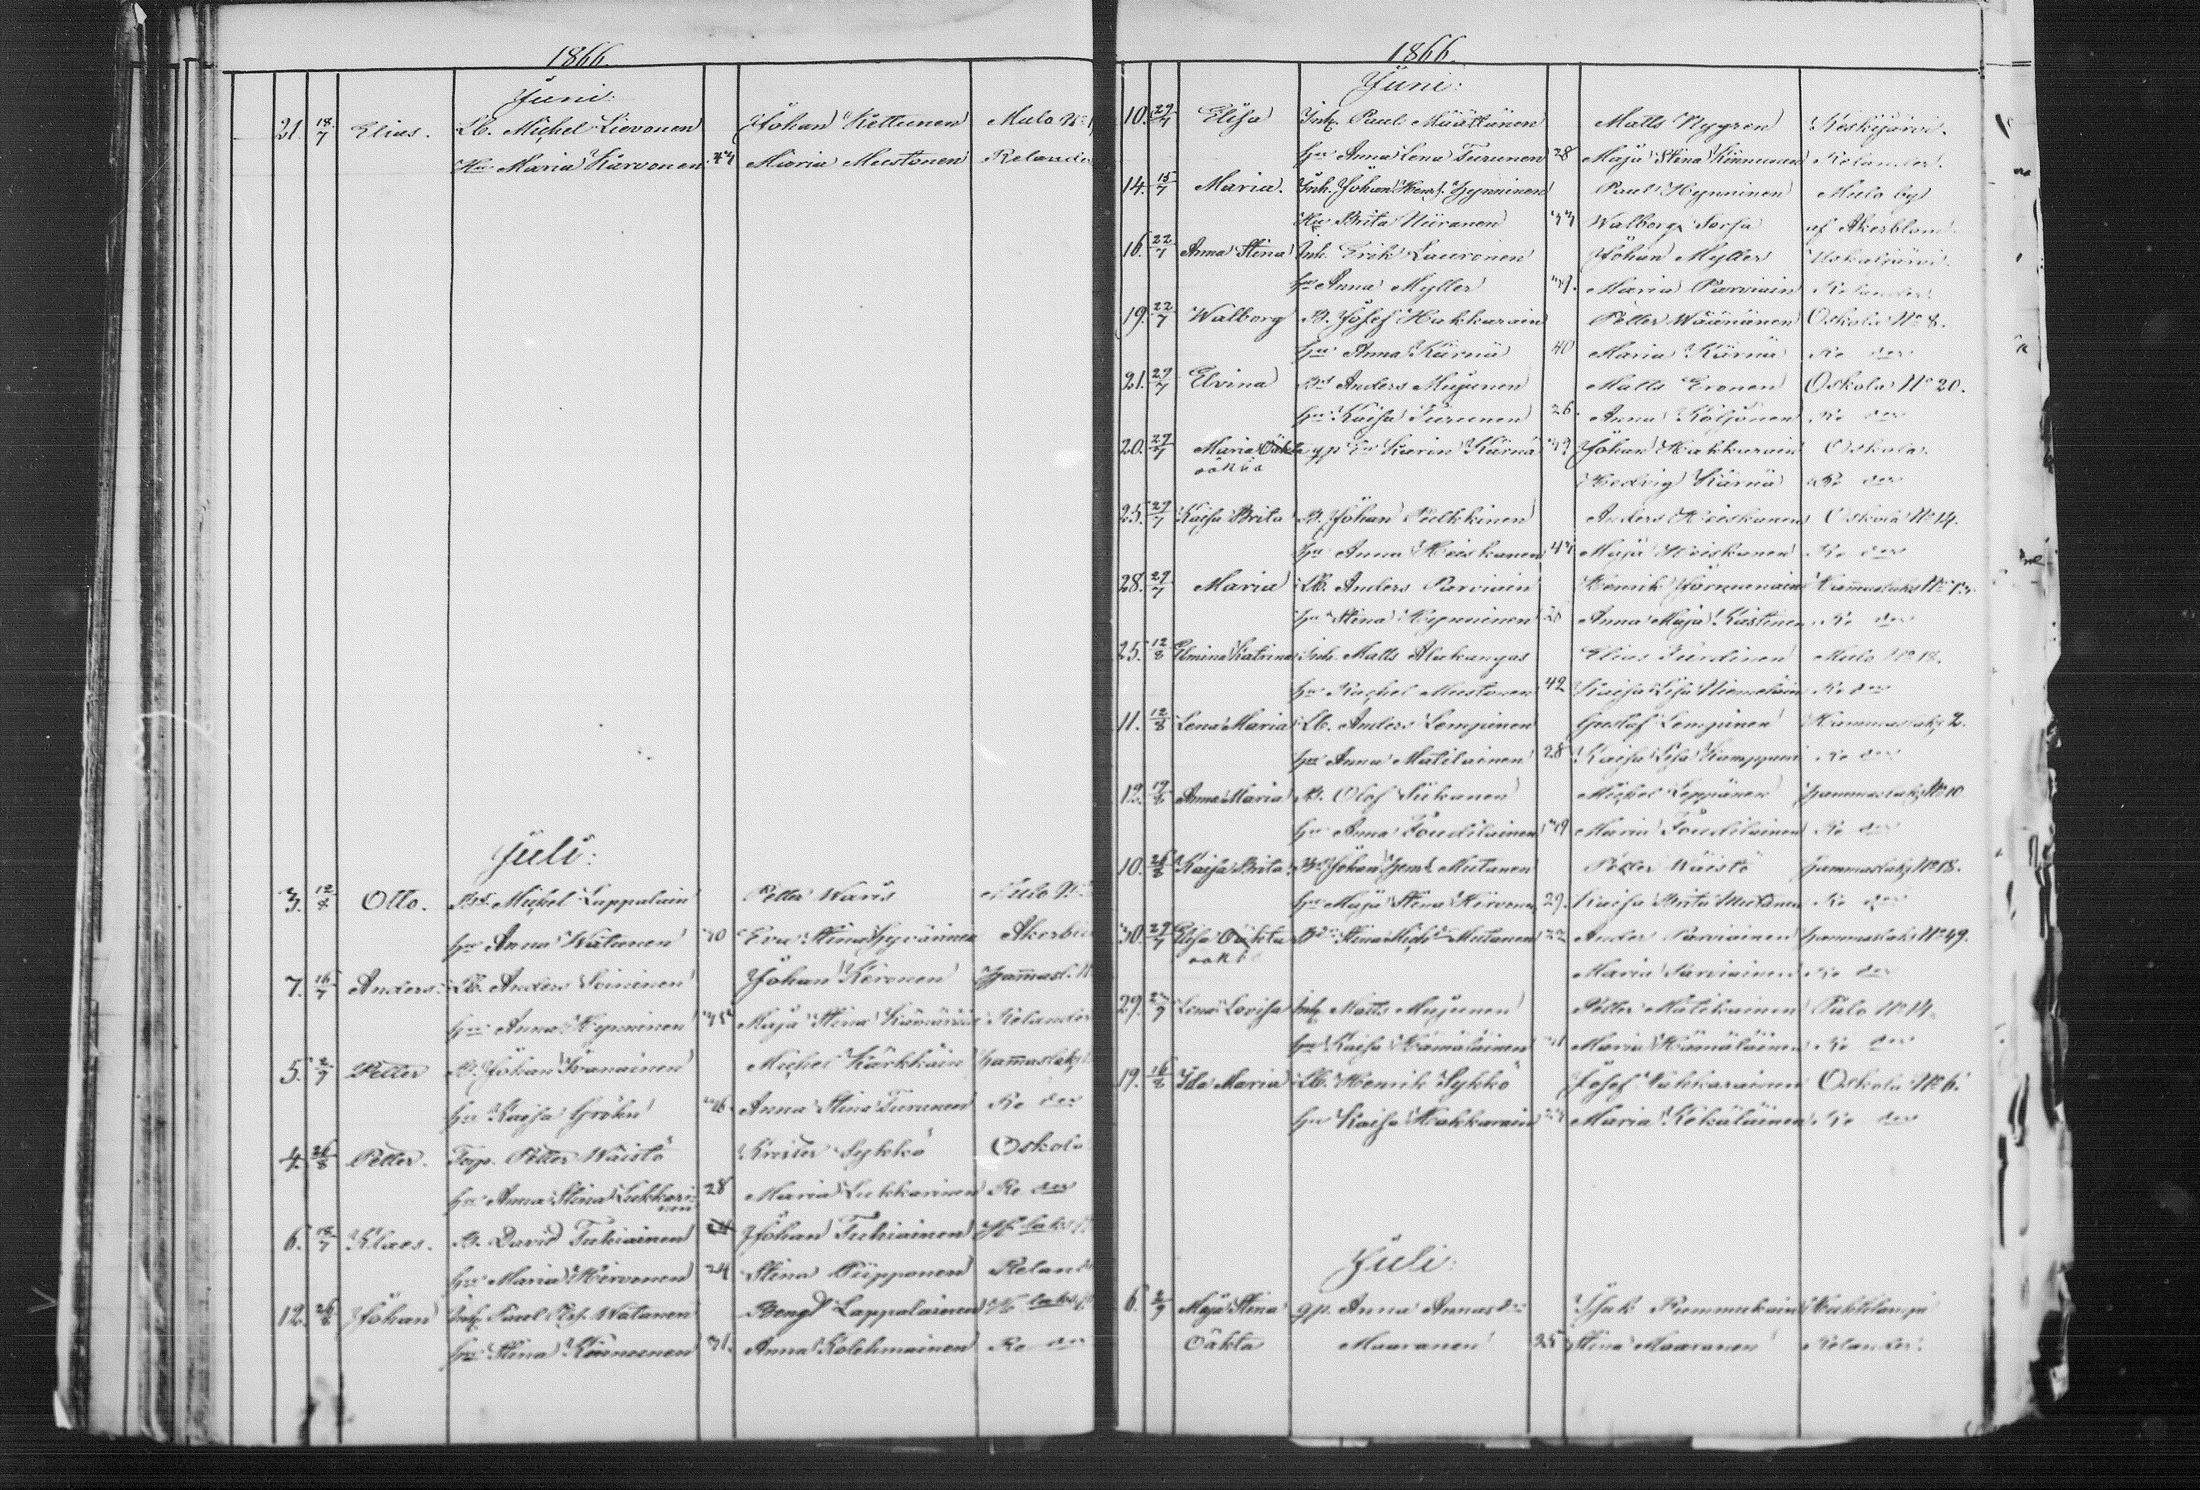 1866.
Juni:
21. 18/7 Elias. Lb. Michel Lievonen Johan Kettunen Mulo No
Hu Maria Karvonen 44 Maria Mustonen Relander
Juli:
3. 12/8 Otto. Michel Lappalain Petter Waris Mulo No
hu Anna Watanen 30 Eva Stina Hyvärinen Åkerbl
7. 16/7 Anders. Lb. Anders Soininen Johan Keronen Hammasl. No
hu Anna Hynninen Maja Stina Relander
5. 2/9 Petter B. Johan Ivanainen Michel Kärkkäin Hammaslaks
hu Kaisa Gröhn 26. Anna Stina Turunen Re der
4. 26/8 Petter. Torp. Petter Wäistö Krister Sykkö Oskola
hu Anna Stina Lukkarinen 28 Maria Lukkarinen Re der
6. 18/7 Klaes. B. David Tuhiainen Johan Tuhiainen H laks
hu Maria Hirvonen 24 Stina Piipponen Reland
12. 26/8 Johan Inh. Paul Watanen Bengt Lappalainen H laks
hu Stina Könnönen 31. Anna Kolehmainen Re der
1866.
Juni:
10. 29/7 Elisa Inh. Paul Määttänen Matts Nygren Keskijärvi.
hu Anna Lena Turunen 28 Maja Stina Kinnunen Relander.
14. 15/7 Maria. Inh. Johan Henr. Hynninen Paul Hynninen Mulo by
Hu Brita Niiranen 33 Walborg Sorsa af Åkerblom.
16. 22/7 Anna Stina Inh. Erik Lauronen Johan Myller Uskaljärvi.
hu Anna Myller Maria Parviain Relander.
19. 22/7 Walborg B. Josef Hakkarain Petter Wäänänen Oskola No 8.
hu Anna Kärnä 40 Maria Kärnä Re der
21. 29/7 Elvina Anders Mujunen Matts Eronen Oskola No 20.
hu Kaisa Turunen 26. Anna Koljonen Re der
20. 29/7 Maria Oäkta gp Karin Kärnä 39 Johan Hakkarain Oskola.
oäkta Hedvig Kärnä Re der
25. 29/7 Kaisa Brita B. Johan Pulkkinen Anders Heiskanen Oskola No 14.
hu Anna Heiskanen 44 Maja Heiskanen Re der
28. 29/7 Maria Lb. Anders Parviain Henrik Hammaslaks No
hu Stina Hynninen Anna Maja Kästinen Re der
25. 12/8 Elmina Katrina Inh. Matts Alakangas Elias Mulo No 18.
hu Rachel Mustonen 42 Kaisa Lisa Niemeläin Re der
11. 12/8 Lena Maria Lb. Anders Lempinen Gustaf Lempinen Hammaslaks 2.
hu Anna Matilainen 28 Kaisa Lisa Kamppuri Re der
12. 19/8 Anna Maria B. Olof Siikanen Michel Leppänen Hammaslaks No 10
hu Anna Toudilainen 39 Maria Toudilainen Re der
10. 26/8 Kaisa Brita Johan Mutanen Petter Wäistö Hammaslaks No 18.
hu Maja Stina Hirvonen 29. Kaisa Brita Mutanen Re der
30. 29/7 Elisa Oäkta Stina Mutanen 22 Ander Parviainen Hammaslaks No 49.
oäkta Maria Parviainen Re der
29. Lena Lovisa Inh. Matts Mujunen Petter Matikainen Pulo No 14.
hu Kaisa Hämäläinen Maria Hämäläinen Re der
19. 16/8 Ida Maria Lb. Henrik Sykkö Josef Hakkarainen Oskola No 6.
hu Kaisa Hakkarain Maria Kekäläinen Re der
Juli:
6. 2/9 Maja Stina gp. Anna Annasdr Isak Pummukain
Oäkta Maaranen 25 Stina Maaranen Relander.